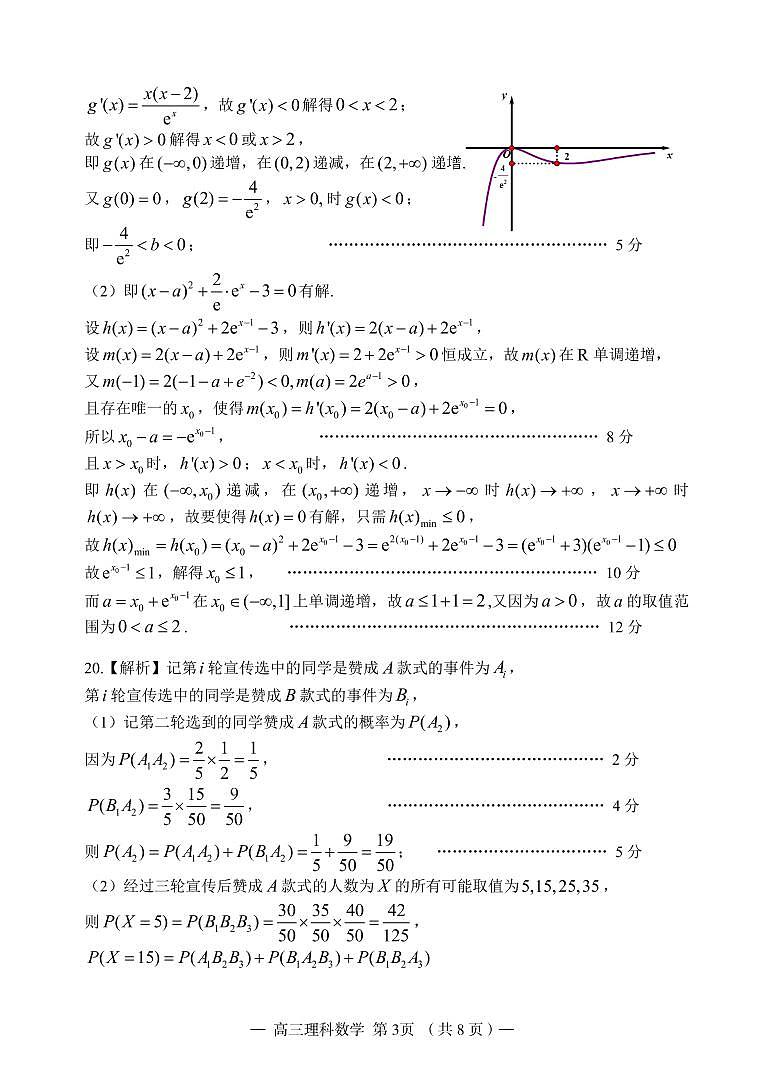 g'(x)=x(x−2)/eˣ，故g'(x)<0解得0<x<2；
故g'(x)>0解得x<0或x>2，
即g(x)在(−∞,0)递增，在(0,2)递减，在(2,+∞)递增.
又g(0)=0，g(2)=−4/e²，x>0,时g(x)<0；
即−4/e²<b<0； ………………………………………… 5分
y
O
2
x
−4/e²
（2）即(x−a)²+2/e·eˣ−3=0有解.
设h(x)=(x−a)²+2e^{x−1}−3，则h'(x)=2(x−a)+2e^{x−1}，
设m(x)=2(x−a)+2e^{x−1}，则m'(x)=2+2e^{x−1}>0恒成立，故m(x)在R单调递增，
又m(−1)=2(−1−a+e^{−2})<0,m(a)=2e^{a−1}>0，
且存在唯一的x₀，使得m(x₀)=h'(x₀)=2(x₀−a)+2e^{x₀−1}=0，
所以x₀−a=−e^{x₀−1}， ………………………………………… 8分
且x>x₀时，h'(x)>0；x<x₀时，h'(x)<0.
即h(x)在(−∞,x₀)递减，在(x₀,+∞)递增，x→−∞时h(x)→+∞，x→+∞时
h(x)→+∞，故要使得h(x)=0有解，只需h(x)_{min}≤0，
故h(x)_{min}=h(x₀)=(x₀−a)²+2e^{x₀−1}−3=e^{2(x₀−1)}+2e^{x₀−1}−3=(e^{x₀−1}+3)(e^{x₀−1}−1)≤0
故e^{x₀−1}≤1，解得x₀≤1， ………………………………………… 10分
而a=x₀+e^{x₀−1}在x₀∈(−∞,1]上单调递增，故a≤1+1=2,又因为a>0，故a的取值范
围为0<a≤2. ………………………………………… 12分
20.【解析】记第i轮宣传选中的同学是赞成A款式的事件为Aᵢ，
第i轮宣传选中的同学是赞成B款式的事件为Bᵢ，
（1）记第二轮选到的同学赞成A款式的概率为P(A₂)，
因为P(A₁A₂)=2/5×1/2=1/5， ………………………………… 2分
P(B₁A₂)=3/5×15/50=9/50， ………………………………… 4分
则P(A₂)=P(A₁A₂)+P(B₁A₂)=1/5+9/50=19/50； ………………………… 5分
（2）经过三轮宣传后赞成A款式的人数为X的所有可能取值为5,15,25,35，
则P(X=5)=P(B₁B₂B₃)=30/50×35/50×40/50=42/125，
P(X=15)=P(A₁B₂B₃)+P(B₁A₂B₃)+P(B₁B₂A₃)
— 高三理科数学 第3页 （共8页）—